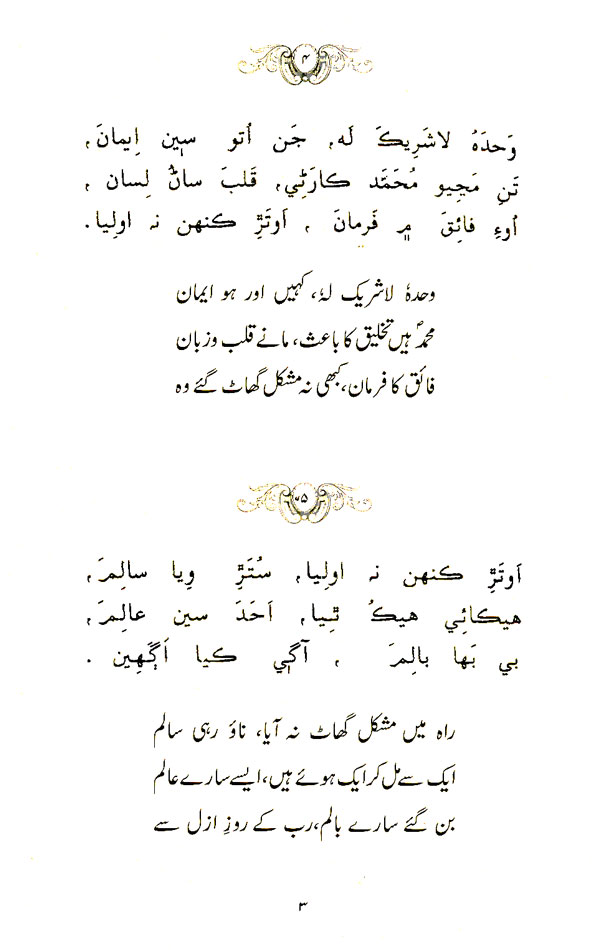 ۴
وَحدَہُ لاشَرِيڪَ لَہ، جَن اُتو سين اِيمانَ،
تَنِ مَڃِيو مُحَمَّد ڪارَڻِي، قَلبَ ساڻُ لِسان ،
اُوءِ فائِقَ ۾ فَرمانَ ، اَوتَڙِ ڪنهن نہ اولِيا.
وحدہٗ لاشریک لہٗ، کہیں اور ہو ایمان
محمدؐ ہیں تخلیق کا باعث، مانے قلب و زبان
فائق کا فرمان، کبھی نہ مشکل گھاٹ گئے وہ
۵
اَوتَڙِ ڪنهن نہ اولِيا، سُتَڙِ وِيا سالِمَ،
هيڪائِي هيڪُ ٿِيا، اَحَدَ سين عالِمَ،
بي بَها بالِمَ ، آڳي ڪيا اَڳَهِين .
راہ میں مشکل گھاٹ نہ آیا، ناؤ رہی سالم
ایک سے مل کر ایک ہوئے ہیں، ایسے سارے عالم
بن گئے سارے بالم، رب کے روزِ ازل سے
۳